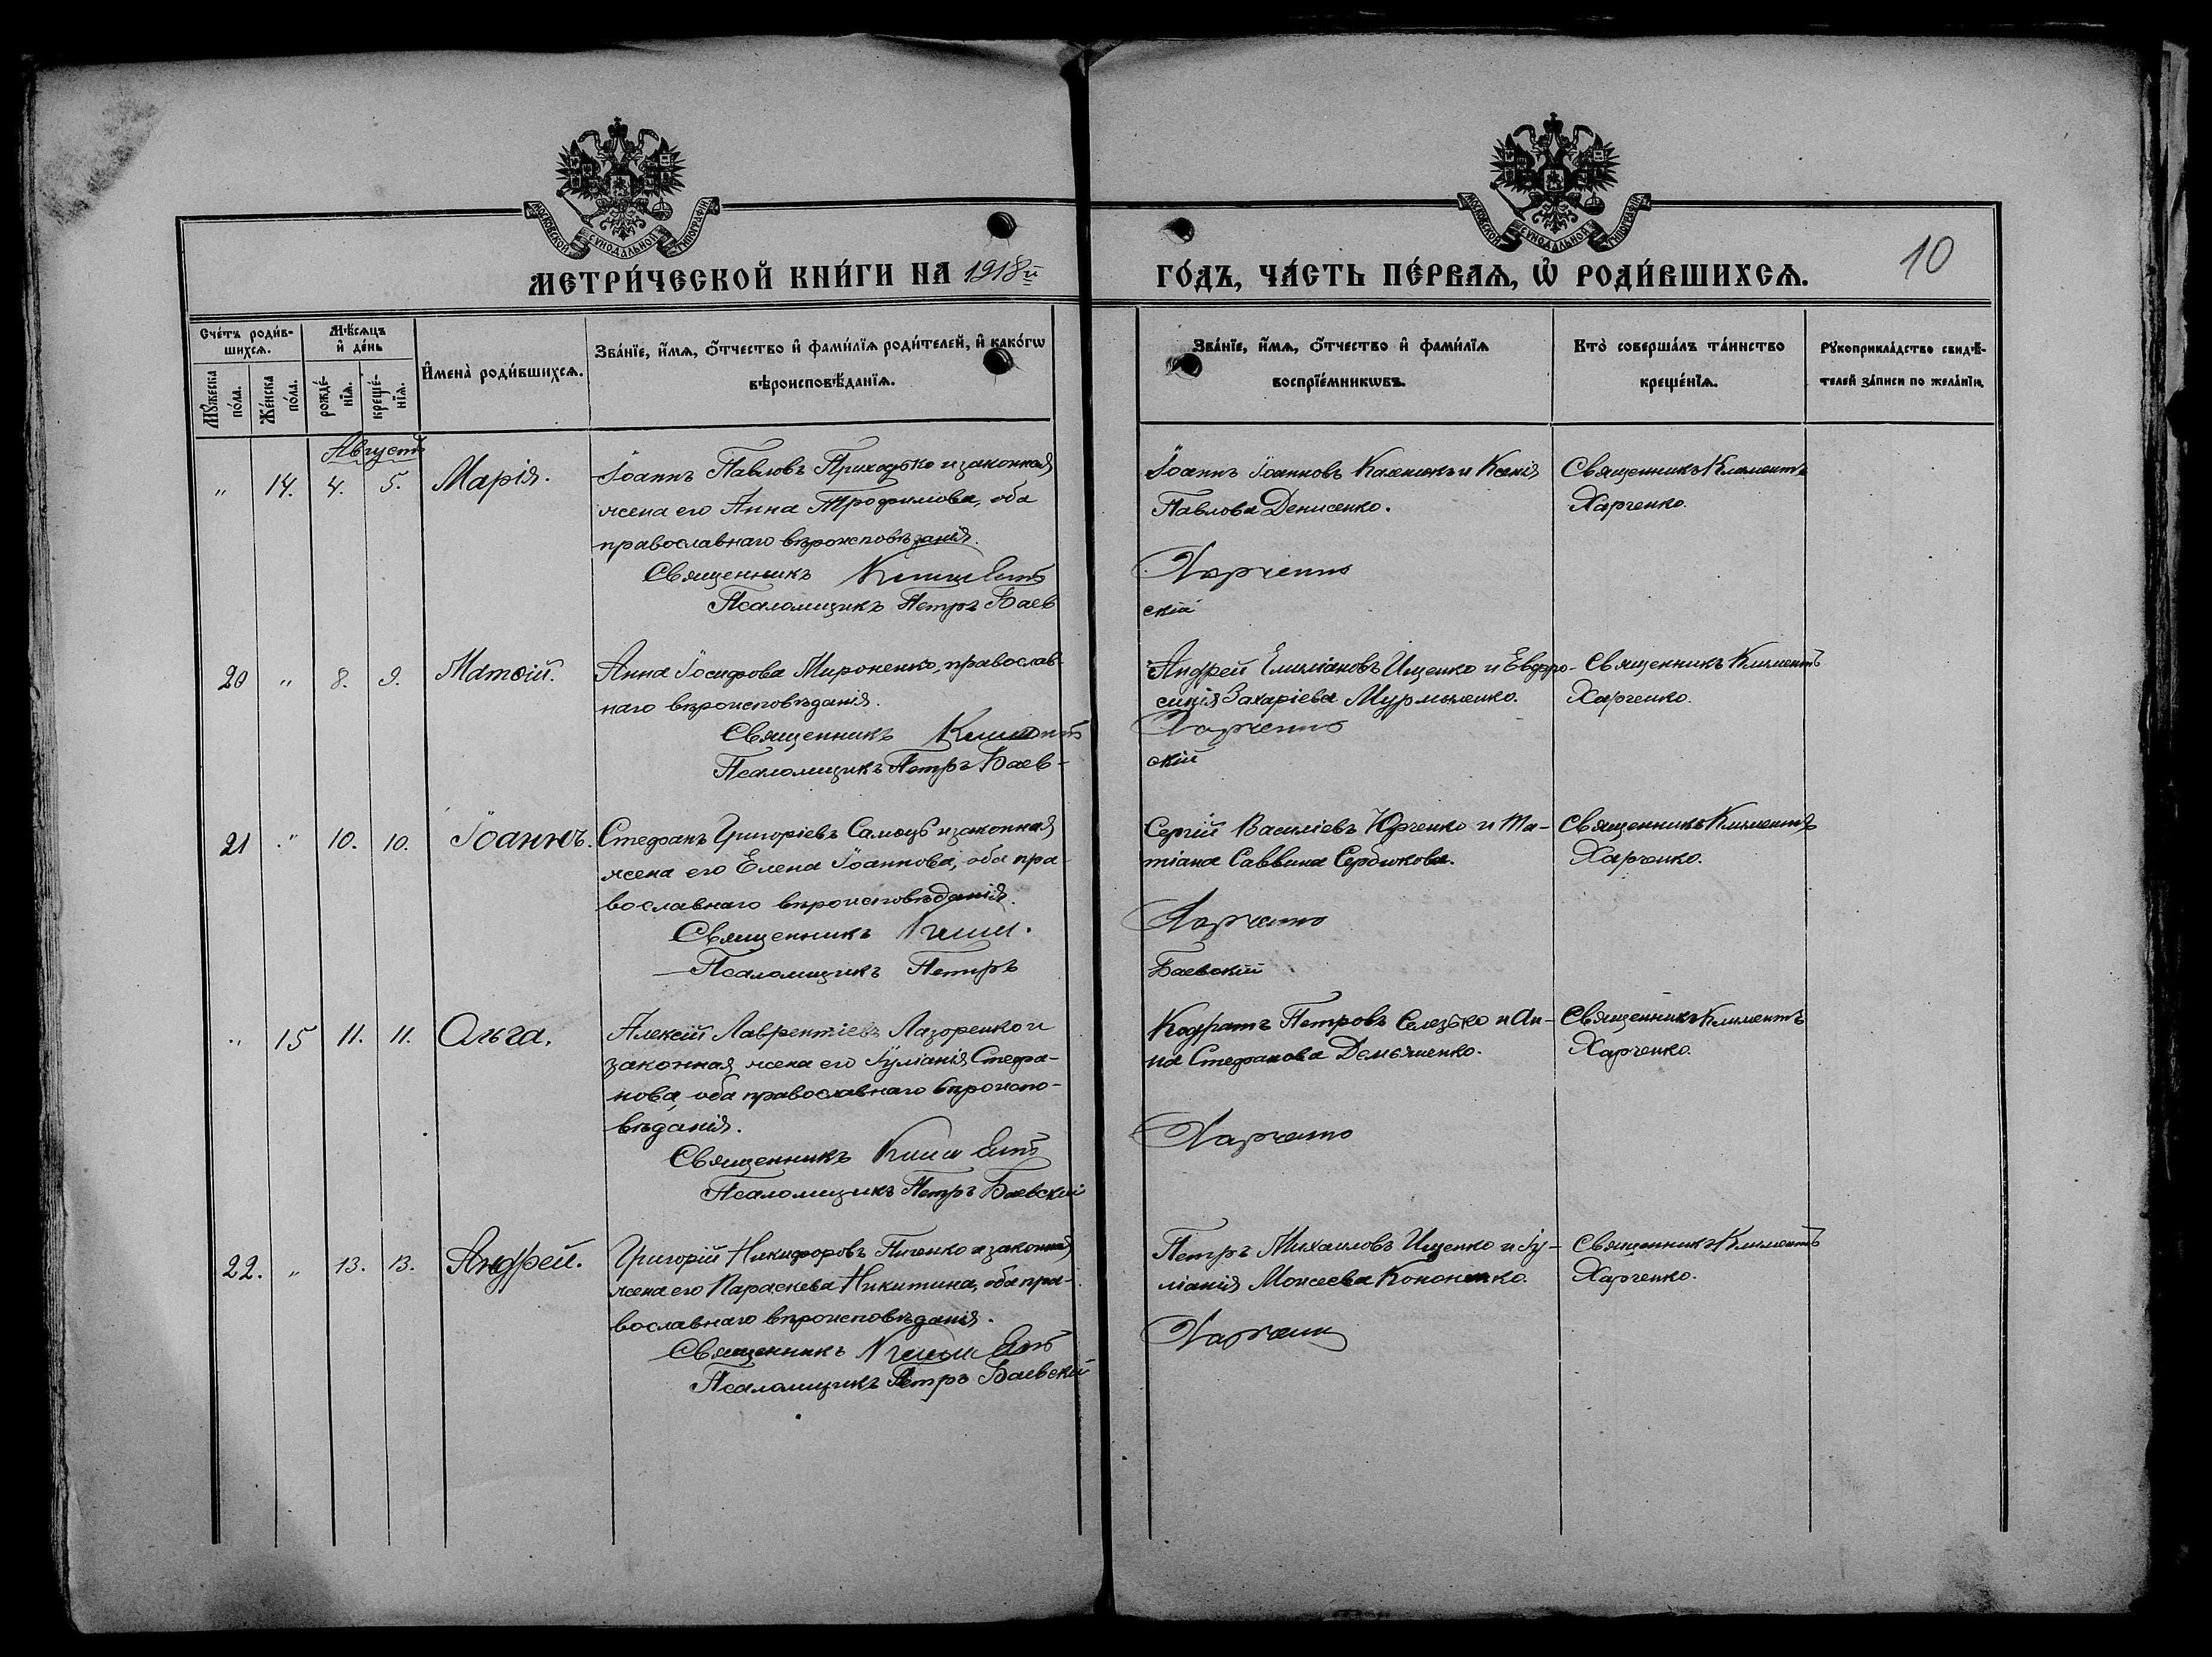 МОСКОВСКОЙ СѴНОДАЛЬНОЙ ТИПОГРАФІИ
МОСКОВСКОЙ СѴНОДАЛЬНОЙ ТИПОГРАФІИ
10
МЕТРИ́ЧЕСКОЙ КНИ́ГИ НА 1918й ГО́ДЪ, ЧА́СТЬ ПЕ́РВАѦ, Ѽ РОДИ́ВШИХСѦ.
Сче́тъ роди́в-
шихсѧ.
Мꙋ́жеска
по́ла.
Же́нска
по́ла.
Мѣ́сѧцъ
и҆ де́нь
рожде́-
нїѧ.
креще́-
нїѧ.
И҆мена̀ роди́вшихсѧ.
Зва́нїе, и҆́мѧ, ѻ҆́тчество и҆ фами́лїѧ роди́телей, и҆ како́гѡ
вѣроисповѣ́данїѧ.
Зва́нїе, и҆́мѧ, ѻ҆́тчество и҆ фами́лїѧ
воспрїе́мникѡвъ.
Кто̀ соверша́лъ та́инство
креще́нїѧ.
Рꙋкоприкла́дство свидѣ́-
телей за́писи по жела́нїю.
Августъ
" 14. 4. 5. Марія.
Іоаннъ Павловъ Приходько и законная
жена его Анна Трофимова, оба
православнаго вѣроисповѣданія.
Священникъ Климентъ Харченко
Псаломщикъ Петръ Баевскій
Іоаннъ Іоанновъ и Ксенія
Павлова Денисенко.
Священникъ Климентъ
Харченко.
20 " 8. 9. Матѳій.
Анна Іосифова Мироненко, православ-
наго вѣроисповѣданія.
Священникъ Климентъ Харченко
Псаломщикъ Петръ Баев-скій
Андрей Емиліановъ Ищенко и Евфро-
синія Захаріева
Священникъ Климентъ
Харченко.
21 " 10. 10. Іоаннъ.
Стефанъ Григоріевъ Самоць и законная
жена его Елена Іоаннова, оба пра-
вославнаго вѣроисповѣданія.
Священникъ Клим. Харченко
Псаломщикъ Петръ Баевскій
Сергій Василіевъ Юрченко и Та-
тіана Саввина Сердюкова.
Священникъ Климентъ
Харченко.
" 15 11. 11. Ольга.
Алексій Лаврентіевъ Лазоренко и
законная жена его Іуліанія Стефа-
нова, оба православнаго вѣроиспо-
вѣданія.
Священникъ Климентъ Харченко
Псаломщикъ Петръ Баевскій
Кодратъ Петровъ Селезько и Ан-
на Стефанова Демьяненко.
Священникъ Климентъ
Харченко.
22. " 13. 13. Андрей.
Григорій Никифоровъ и законная
жена его Параскева Никитина, оба пра-
вославнаго вѣроисповѣданія.
Священникъ Климентъ Харченко
Псаломщикъ Петръ Баевскій
Петръ Михаиловъ Ищенко и Іу-
ліанія Моисеева Кононенко.
Священникъ Климентъ
Харченко.